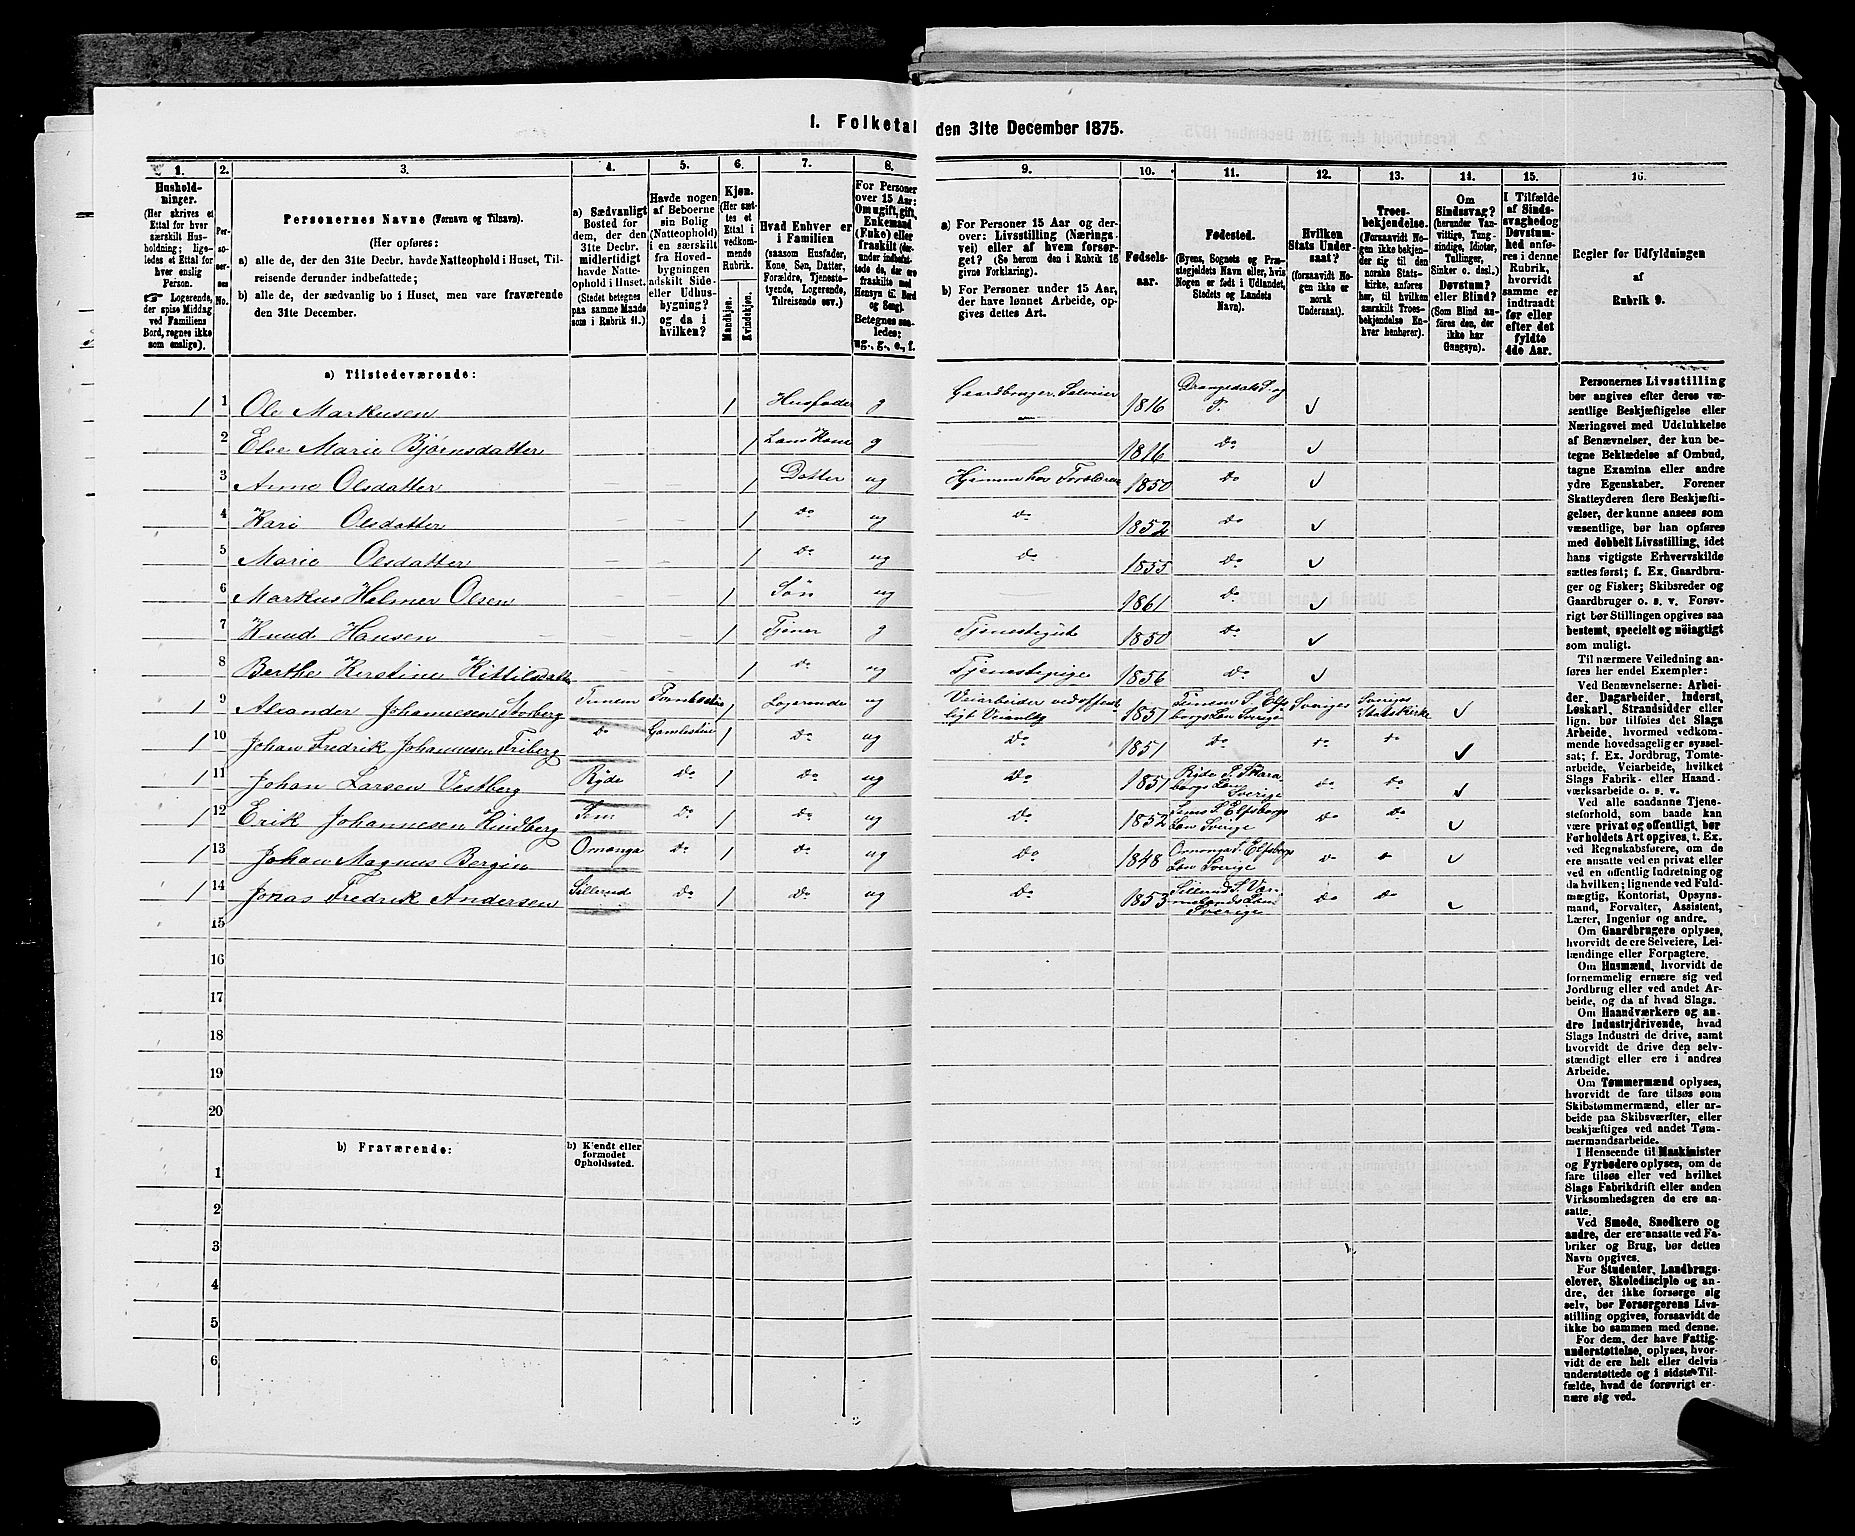 1. Folketal den 31te December 1875.
1. 2. 3. 4. 5. 6. 7. 8. 9. 10. 11. 12. 13. 14. 15. 16.
Hushold-
ninger.
(Her skrives et
Ettal for hver
særskilt Hus-
holdning; lige-
ledes et Ettal for
hver enslig
Person.
☞ Logerende,
der spise Middag
ved Familiens
Bord, regnes ikke
som enslige).
Per-
so-
ner-
nes
No.
Personernes Navne (Fornavn og Tilnavn).
(Her opføres:
a) alle de, der den 31te Decbr. havde Natteophold i Huset, Til-
reisende derunder indbefattede;
b) alle de, der sædvanlig bo i Huset, men vare fraværende
den 31te December.
a) Sædvanligt
Bosted for
dem, der den
31te Decbr.
midlertidigt
havde Natte-
ophold i Huset.
(Stedet betegnes
paa samme Maade
som i Rubrik 11.)
Havde nogen
af Beboerne
sin Bolig
(Natteophold)
i en særskilt
fra Hoved-
bygningen
adskilt Side-
eller Udhus-
bygning?
og da i
hvilken?
Kjøn.
(Her sæt-
tes et
Ettal i
vedkom-
mende
Rubrik.
Mandkjøn.
Kvindekjøn.
Hvad Enhver er
i Familien
(saasom Husfader,
Kone, Søn, Datter,
Forældre, Tjeneste-
tyende, Logerende,
Tilreisende osv.)
For Personer
over 15 Aar:
Om ugift, gift,
Enkemand
(Enke) eller
fraskilt (der-
under indbefat-
tede de, der ere
fraskilte med
Hensyn til Bord
og Seng).
Betegnes saa-
ledes:
ug., g., e., f.
a) For Personer 15 Aar og der-
over: Livsstilling (Næringa-
vei) eller af hvem forsør-
get? (Se herom den i Rubrik 16
givne Forklaring).
b) For Personer under 15 Aar,
der have lønnet Arbeide, op-
gives dettes Art.
Fødsels-
aar.
Fødested.
(Byens, Sognets og Præ-
stegjeldets Navn eller, hvis
Nogen er født i Udlandet,
Stedets og Landets
Navn).
Hvilken
Stats Under-
saat?
(forsaavidt No-
gen ikke er
norsk
Undersaat).
Troes-
bekjendelse.
(Forsaavidt No-
gen ikke bekjen-
der sig til den
norske Stats-
kirke, anføres
her, til hvilken
særskilt Troes-
bekjendelse En-
hver henhører).
Om
Sindssvag?
(herunder Van-
vittige, Tung-
sindige, Idioter,
Tullinger,
Sinker o. desl.)
Døvstum?
eller Blind?
(Som Blind an-
føres den, der
ikke har
Gangsyn).
I Tilfælde
af Sinds-
svaghed og
Døvstum-
hed anfø-
res i denne
Rubrik,
hvorvidt
samme er
indtraadt
før eller
efter det
fyldte
4de Aar.
Regler for Udfyldningen
af
Rubrik 9.
a) Tilstedeværende:
1 1 Ole Markusen 1 Husfader g Gaardbruger, Selveier 1816 Drangedals S. og P. ✓
2 Else Marie Bjørnsdatter 1 Hans Kone g 1816 Do ✓
3 Anne Olsdatter 1 Datter ug Hjemme hos Forældrene 1850 Do ✓
4 Kari Olsdatter 1 Do ug Do 1852 Do ✓
5 Marie Olsdatter 1 Do ug Do 1855 Do ✓
6 Markus Helmer Olsen 1 Søn ug 1861 Do ✓
7 Knud Hansen 1 Tjener g Tjenestegut 1850 Do ✓
8 Berthe Kirstine Kittilsdatter 1 Do ug Tjenestepige 1856 Do ✓
1 9 Alexander Johannesen Storberg 1 Logerende ug Veiarbeider ved offent-
ligt Veianlæg 1851 S. Elfs-
borgs Len Sverige Sveriges Sveriges
Statskirke ✓
1 10 Johan Fredrik Johannesen Friberg Do 1 Do ug Do 1851 Do Do Do ✓
1 11 Johan Larsen Vestberg Ryde Do 1 Do ug Do 1851 Ryde S. Skara-
borgs Len
Sverige Do Do ✓
1 12 Erik Johannesen Rindberg Do 1 Do ug Do 1852 S. Elfsborgs
Len Sverige Do Do ✓
1 13 Johan Magnus Bergin Ornunga Do 1 Do ug Do 1848 Ornunga S. Elfsborgs
Len Sverige Do Do ✓
1 14 Jonas Fredrik Andersen Sillerud Do 1 Do ug Do 1853 Sillerud S. Ver-
melands Len
Sverige Do Do ✓
15
16
17
18
19
20
b) Fraværende:
b) Kjendt eller
formodet
Opholdssted.
1
2
3
4
5
6
Personernes Livsstilling
bør angives efter deres væ-
sentlige Beskjæftigelse eller
Næringsvei med Udelukkelse
af Benævnelser, der kun be-
tegne Beklædelse af Ombud,
tagne Examina eller andre
ydre Egenskaber. Forener
Skatteyderen flere Beskjæfti-
gelser, der kunne ansees som
væsentlige, bør han opføres
med dobbelt Livsstilling, idet
hans vigtigste Erhvervskilde
sættes først; f. Ex. Gaardbru-
ger og Fisker; Skibsreder og
Gaardbruger o. s. v. Forøv-
rigt bør Stillingen opgives saa
bestemt, specielt og nøiagtigt
som muligt.
Til nærmere Veiledning an-
føres her endel Exempler:
Ved Benævnelserne: Arbei-
der, Dagarbeider, Inderst,
Løskarl, Strandsidder eller
lign. bør tilføies det Slags
Arbeide, hvormed vedkom-
mende hovedsagelig er syssel-
sat; f. Ex. Jordbrug, Tomte-
arbeide, Veiarbeide, hvilket
Slags Fabrik- eller Haand-
værksarbeide o. s. v.
Ved alle saadanne Tjene-
steforhold, som baade kan
være privat og offentligt, bør
Forholdets Art opgives, t. Ex.
ved Regnskabsførere, om de
ere ansatte ved en privat eller
ved en offentlig Indretning og
da hvilken; lignende ved Fuld-
mægtig, Kontorist, Opsyns-
mand, Forvalter, Assistent,
Lærer, Ingeniør og andre.
Om Gaardbrugere oplyses,
hvorvidt de ere Selveiere, Lei-
lændinge eller Forpagtere.
Om Husmænd, hvorvidt de
fornemmelig ernære sig ved
Jordbrug eller ved andet Ar-
beide, og da af hvad Slags.
Om Haandværkere og an-
dre Industridrivende, hvad
Slags Industri de drive, samt
hvorvidt de drive den selv-
stændigt eller ere i andres
Arbeide.
Om Tømmermænd oplyses,
hvorvidt de fare tilsøs som
Skibstømmermænd, eller ar-
beide paa Skibsværfter, eller
beskjæftiges ved andet Tøm-
mermandsarbeide.
I Henseende til Maskinister
og Fyrbødere oplyses, om de
fare tilsøs eller ved hvilket
Slags Fabrikdrift eller anden
Virksomhedsgren de ere an-
satte.
Ved Smede, Snedkere og
andre, der ere ansatte ved Fa-
briker og Brug, bør dettes
Navn opgives.
For Studenter, Landbrugs-
elever, Skoledisciple og an-
dre, der ikke forsørge sig
selv, bør Forsørgerens Livs-
stilling opgives, forsaavidt de
ikke bo sammen med denne.
For dem, der have Fattig-
understøttelse, oplyses, hvor-
vidt de ere helt eller delvis
understøttede og i sidste Til-
fælde, hvad de forøvrigt er-
nære sig ved.